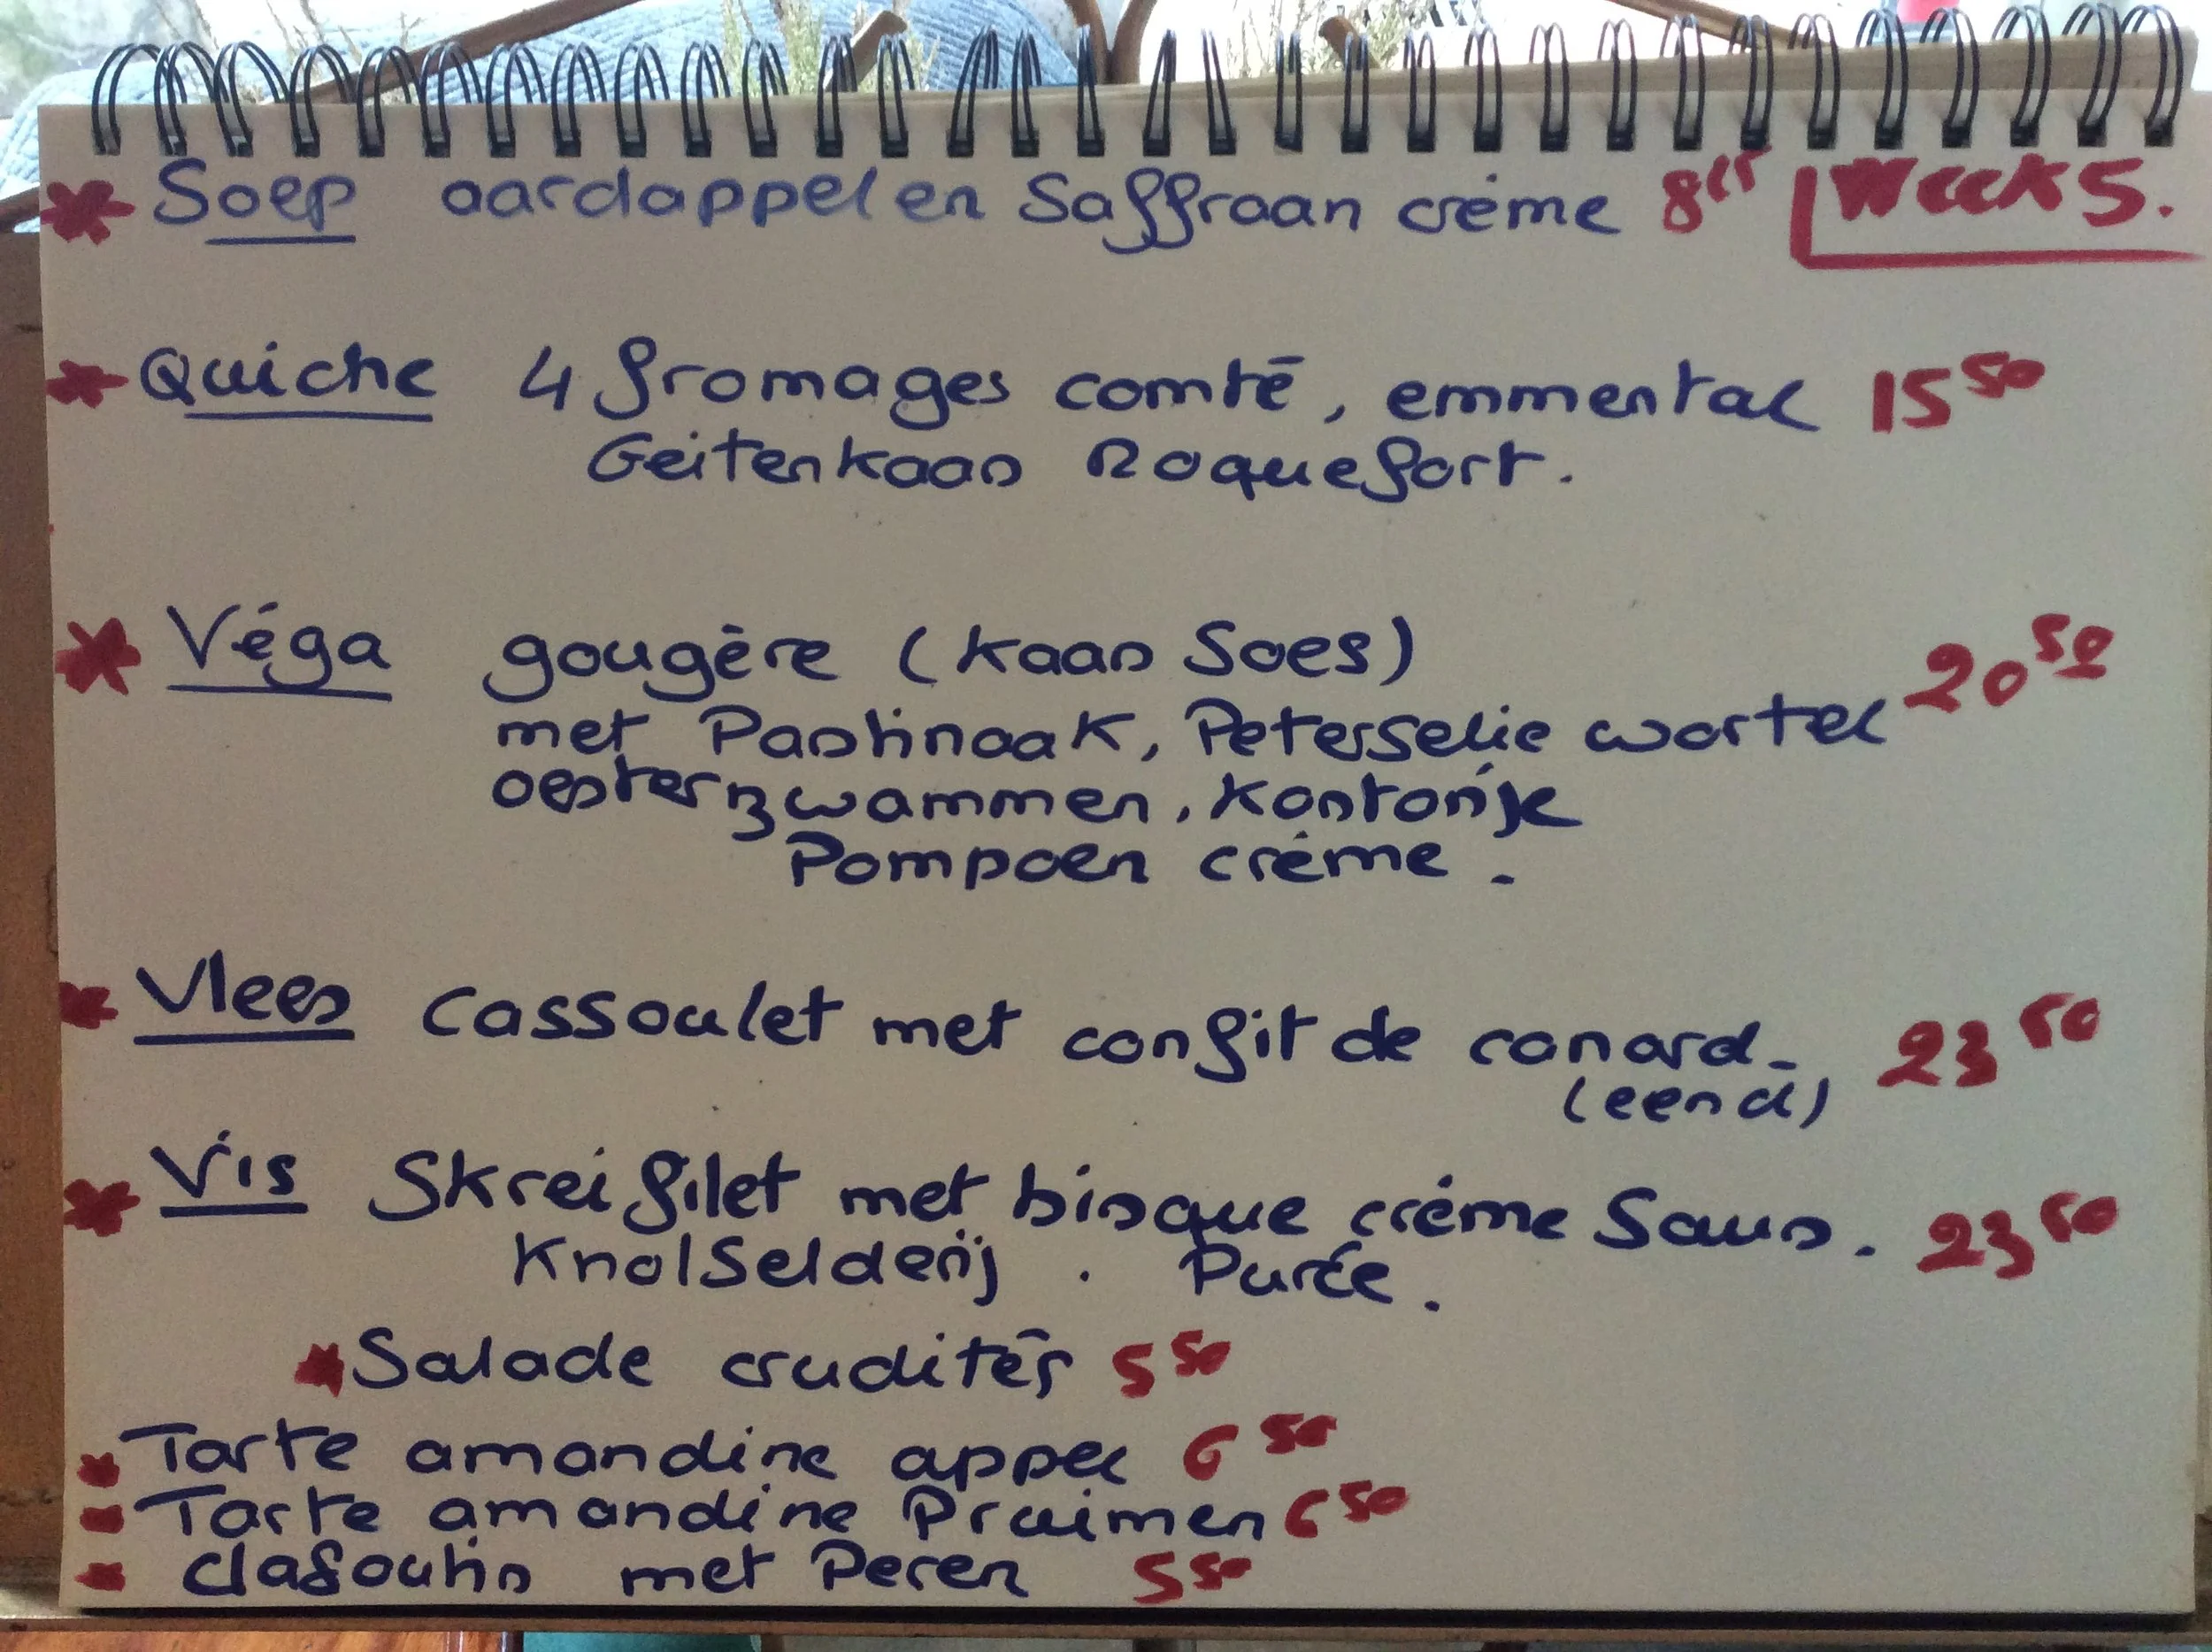 Soep aardappel en Saffraan crème Week 5.
Quiche 4 fromages comté, emmental 15 50
Geitenkaas Roquefort.
Véga gougère (Kaas Soes) 20 50
met Pastinaak, Peterselie wortel
oesterzwammen, Kastanje
Pompoen crème.
Vlees Cassoulet met confit de canard. 23 50
(eend)
Vis Skrei filet met bisque crème Saus. 23 50
Knolselderij. Purée.
Salade crudités 5 50
Tarte amandine appel 6 50
Tarte amandine Pruimen 6 50
clafoutis met Peren 5 50